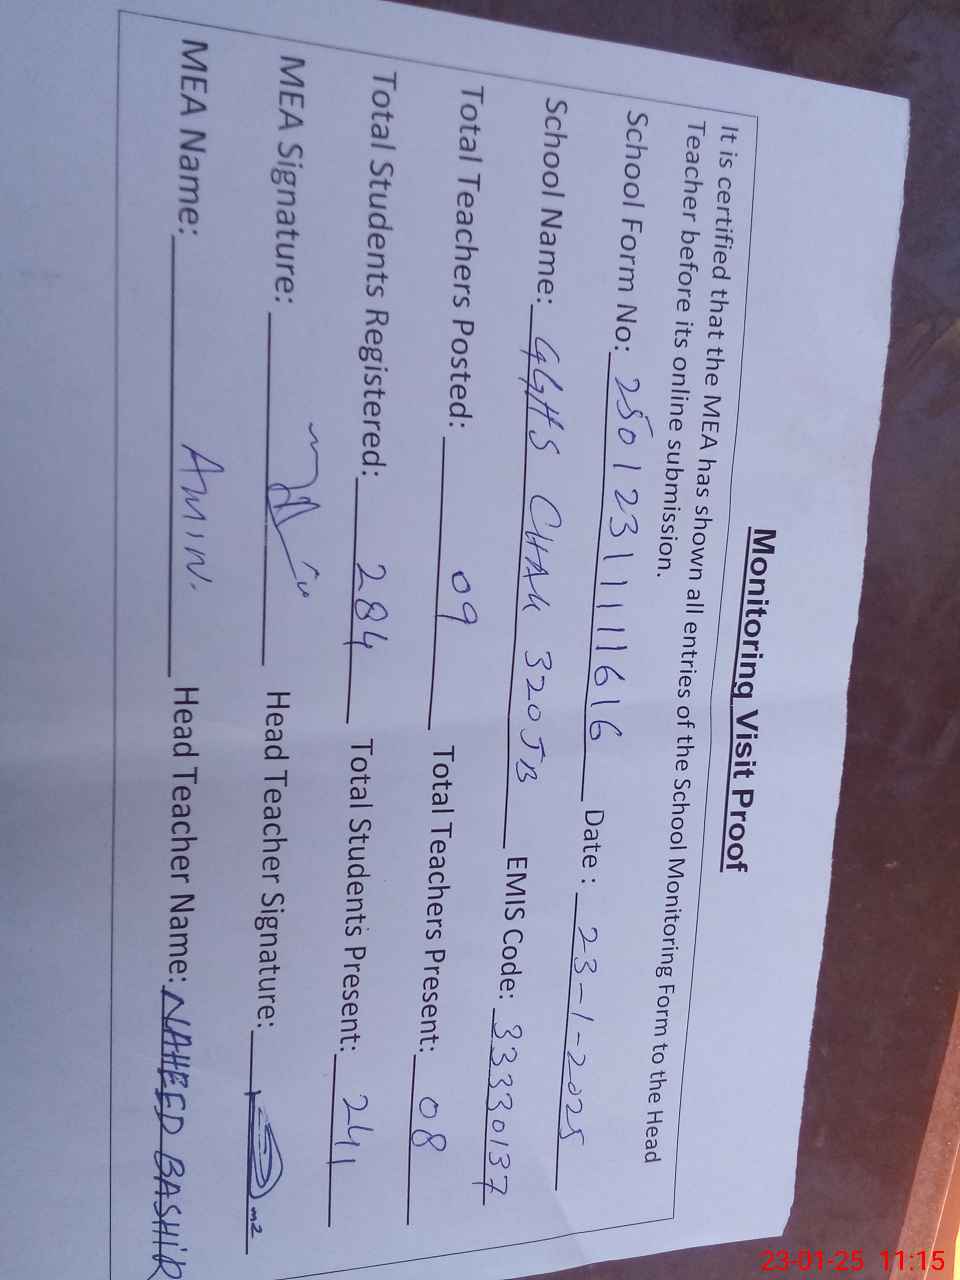 Monitoring Visit Proof
It is certified that the MEA has shown all entries of the School Monitoring Form to the Head
Teacher before its online submission.
School Form No: 2501231111616 Date : 23-1-2025
School Name: GGHS CHAK 320JB EMIS Code: 33330137
Total Teachers Posted: 09 Total Teachers Present: 08
Total Students Registered: 284 Total Students Present: 241
MEA Signature: Head Teacher Signature:
MEA Name: AMIN. Head Teacher Name: NAHEED BASHIR
23-01-25 11:15